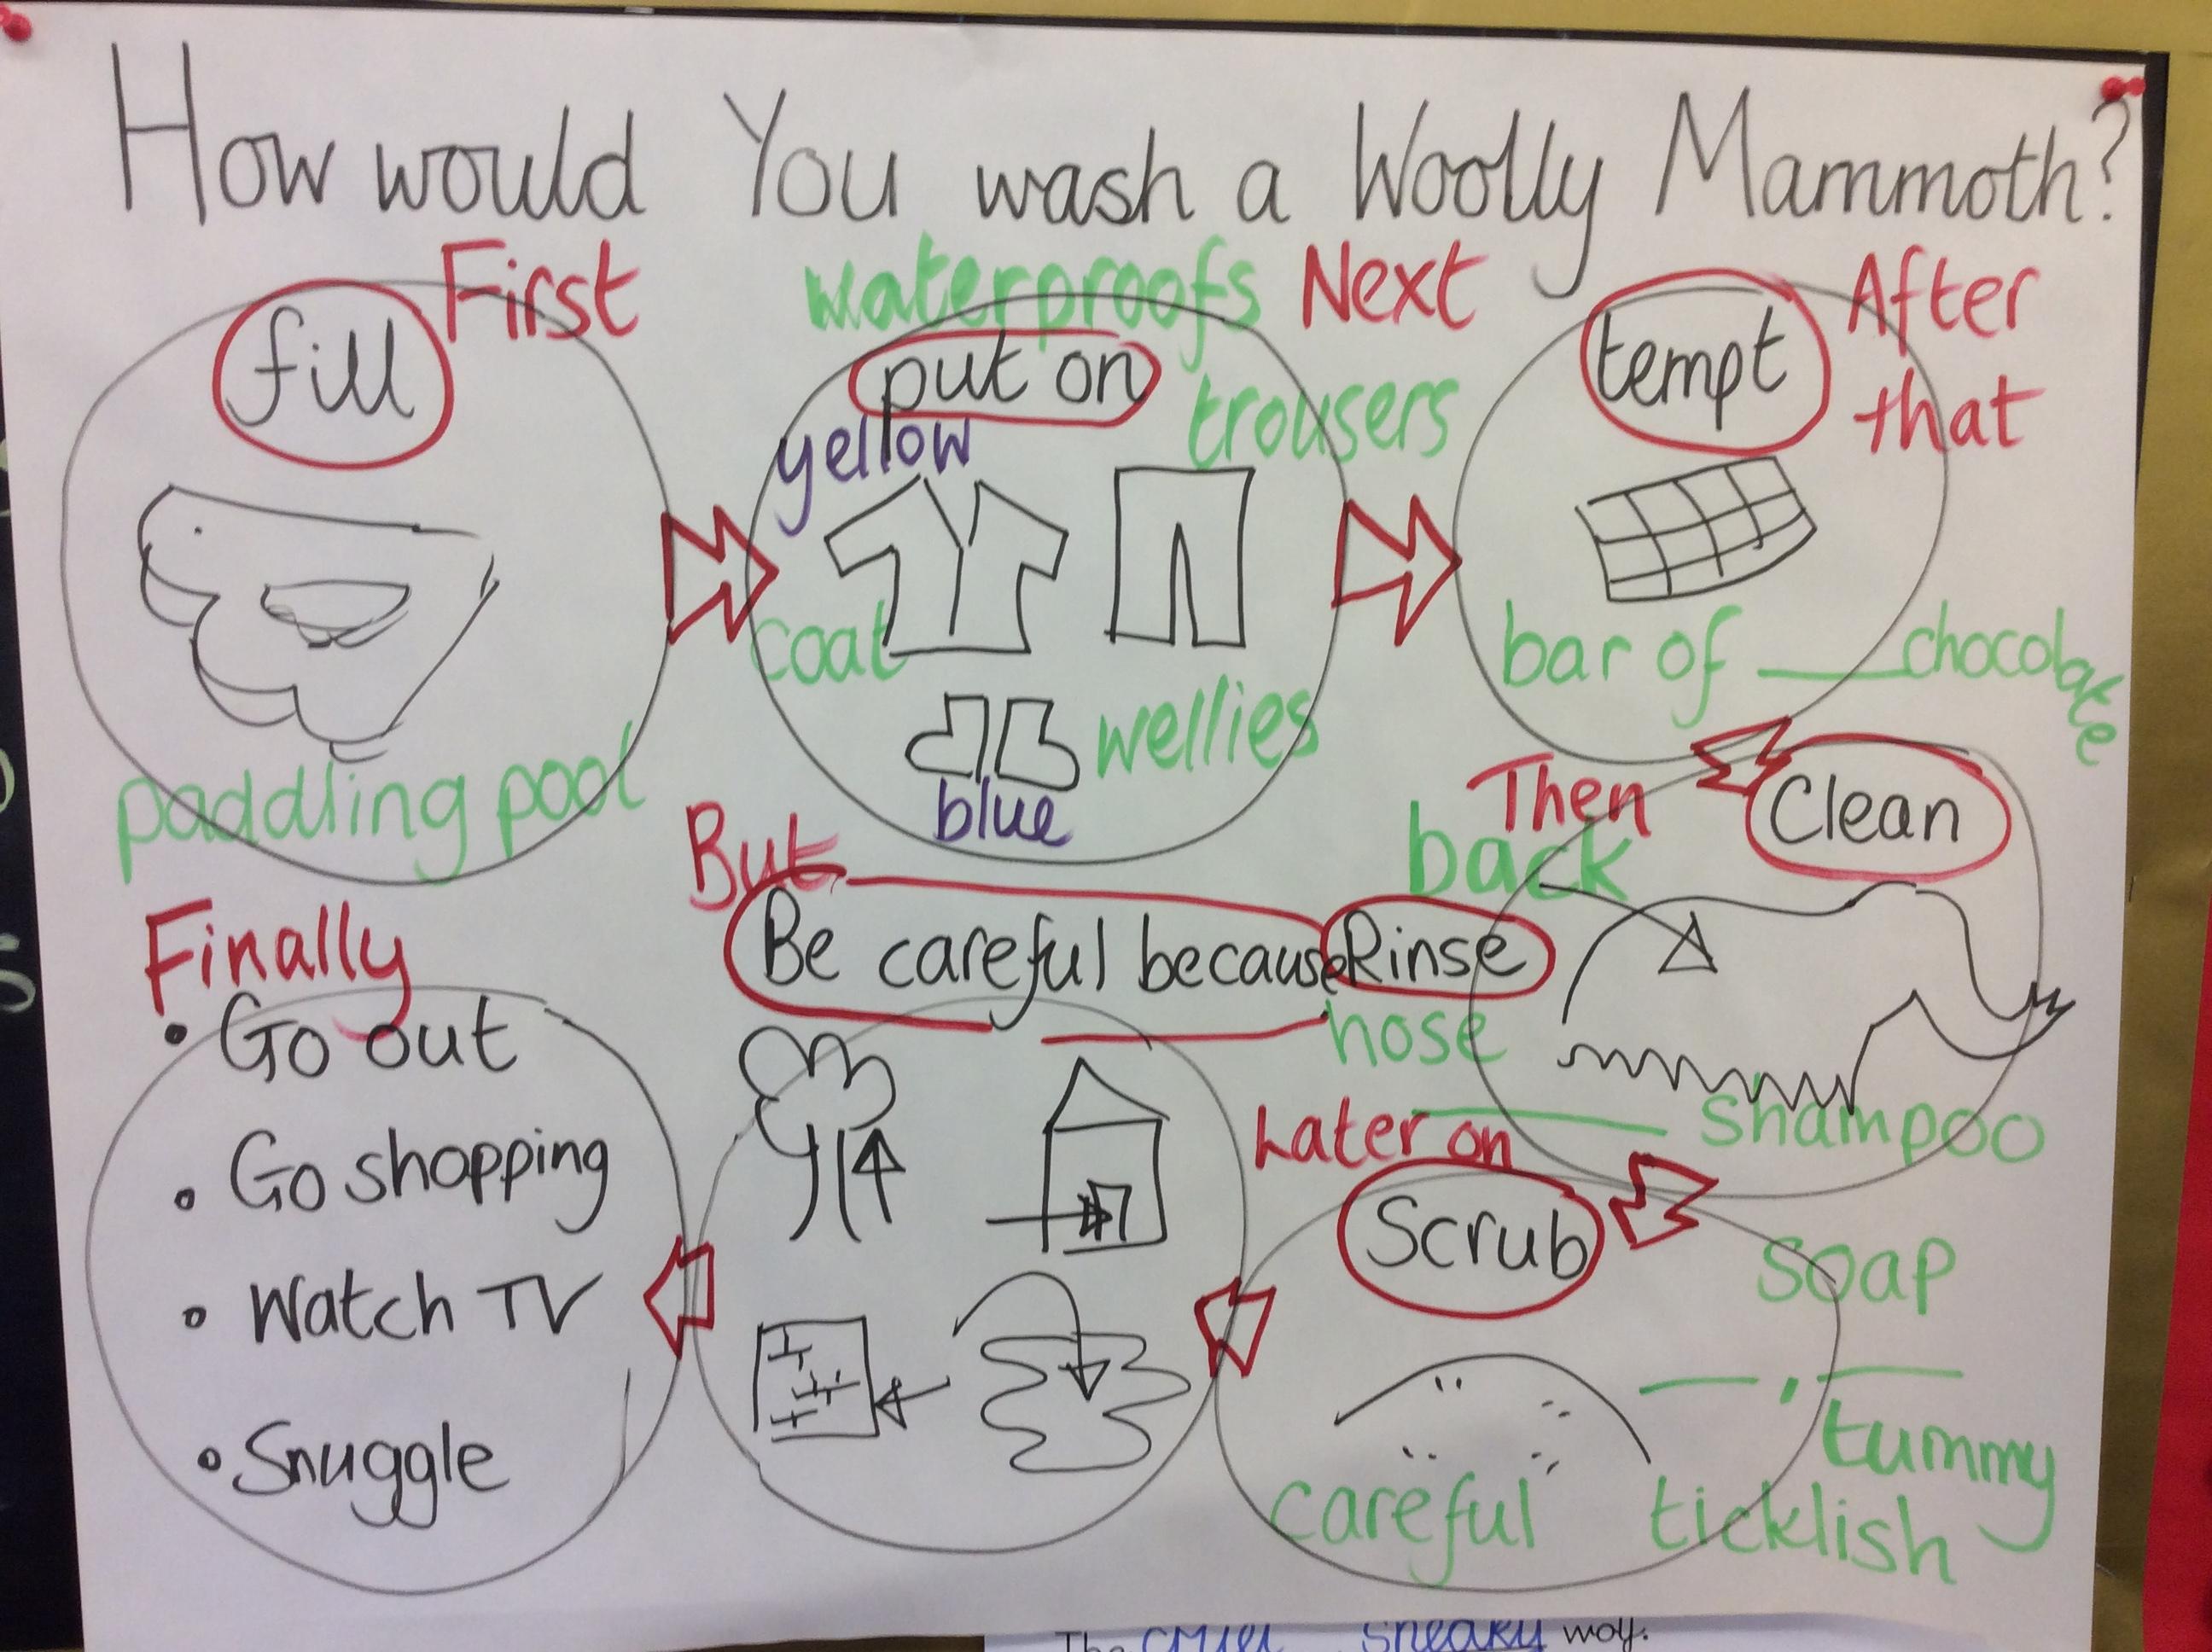 How would You wash a Woolly Mammoth?
First
fill
paddling pool
waterproofs
put on
yellow
trousers
coat
wellies
blue
Next
tempt
bar of ____ chocolate
After
that
Then
Clean
back
Rinse
hose
____ shampoo
Later on
Scrub
soap
__, __
tummy
careful ticklish
But
Be careful because
Finally
• Go out
• Go shopping
• Watch TV
• Snuggle
The sneaky wolf.